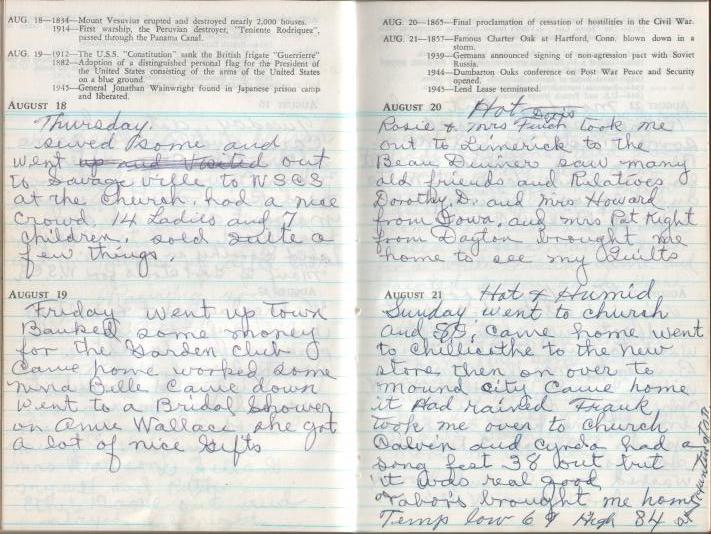 AUG. 18—1834—Mount Vesuvius erupted and destroyed nearly 2,000 houses.
1914—First warship, the Peruvian destroyer, "Teniente Rodriquez",
passed through the Panama Canal.
AUG. 19—1912—The U.S.S. "Constitution" sank the British frigate "Guerriere"
1882—Adoption of a distinguished personal flag for the President of
the United States consisting of the arms of the United States
on a blue ground.
1945—General Jonathan Wainwright found in Japanese prison camp
and liberated.
AUGUST 18
Thursday.
sewed some and
went up and visited out
to Savage ville, to WSCS
at the Church, had a nice
crowd, 14 Ladies and 7
children, sold quite a
few things.
AUGUST 19
Friday went up Town
Banked some money
for the Garden club
Came home worked some
nina Belle Came down
went to a Bridal Shower
on Anne Wallace she got
a lot of nice Gifts
AUG. 20—1865—Final proclamation of cessation of hostilities in the Civil War.
AUG. 21—1857—Famous Charter Oak at Hartford, Conn. blown down in a
storm.
1939—Germans announced signing of non-agression pact with Soviet
Russia.
1944—Dumbarton Oaks conference on Post War Peace and Security
opened.
1945—Lend Lease terminated.
AUGUST 20 Hot
Doris
Rosie & Mrs Finch took me
out to Limerick to the
Bean Dinner saw many
old friends and Relatives
Dorothy, D. and Mrs Howard
from Iowa, and Mrs Pat Right
from Dayton brought me
home to see my Quilts
AUGUST 21 Hot & Humid
Sunday went to church
and SS, came home went
to chillicothe to the new
store then on over to
mound city Came home
it Had rained Frank
took me over to church
Calvin and Cynda had a
song fest 38 out but
it was real good
Tabors brought me home
Temp low 69 High 84 at